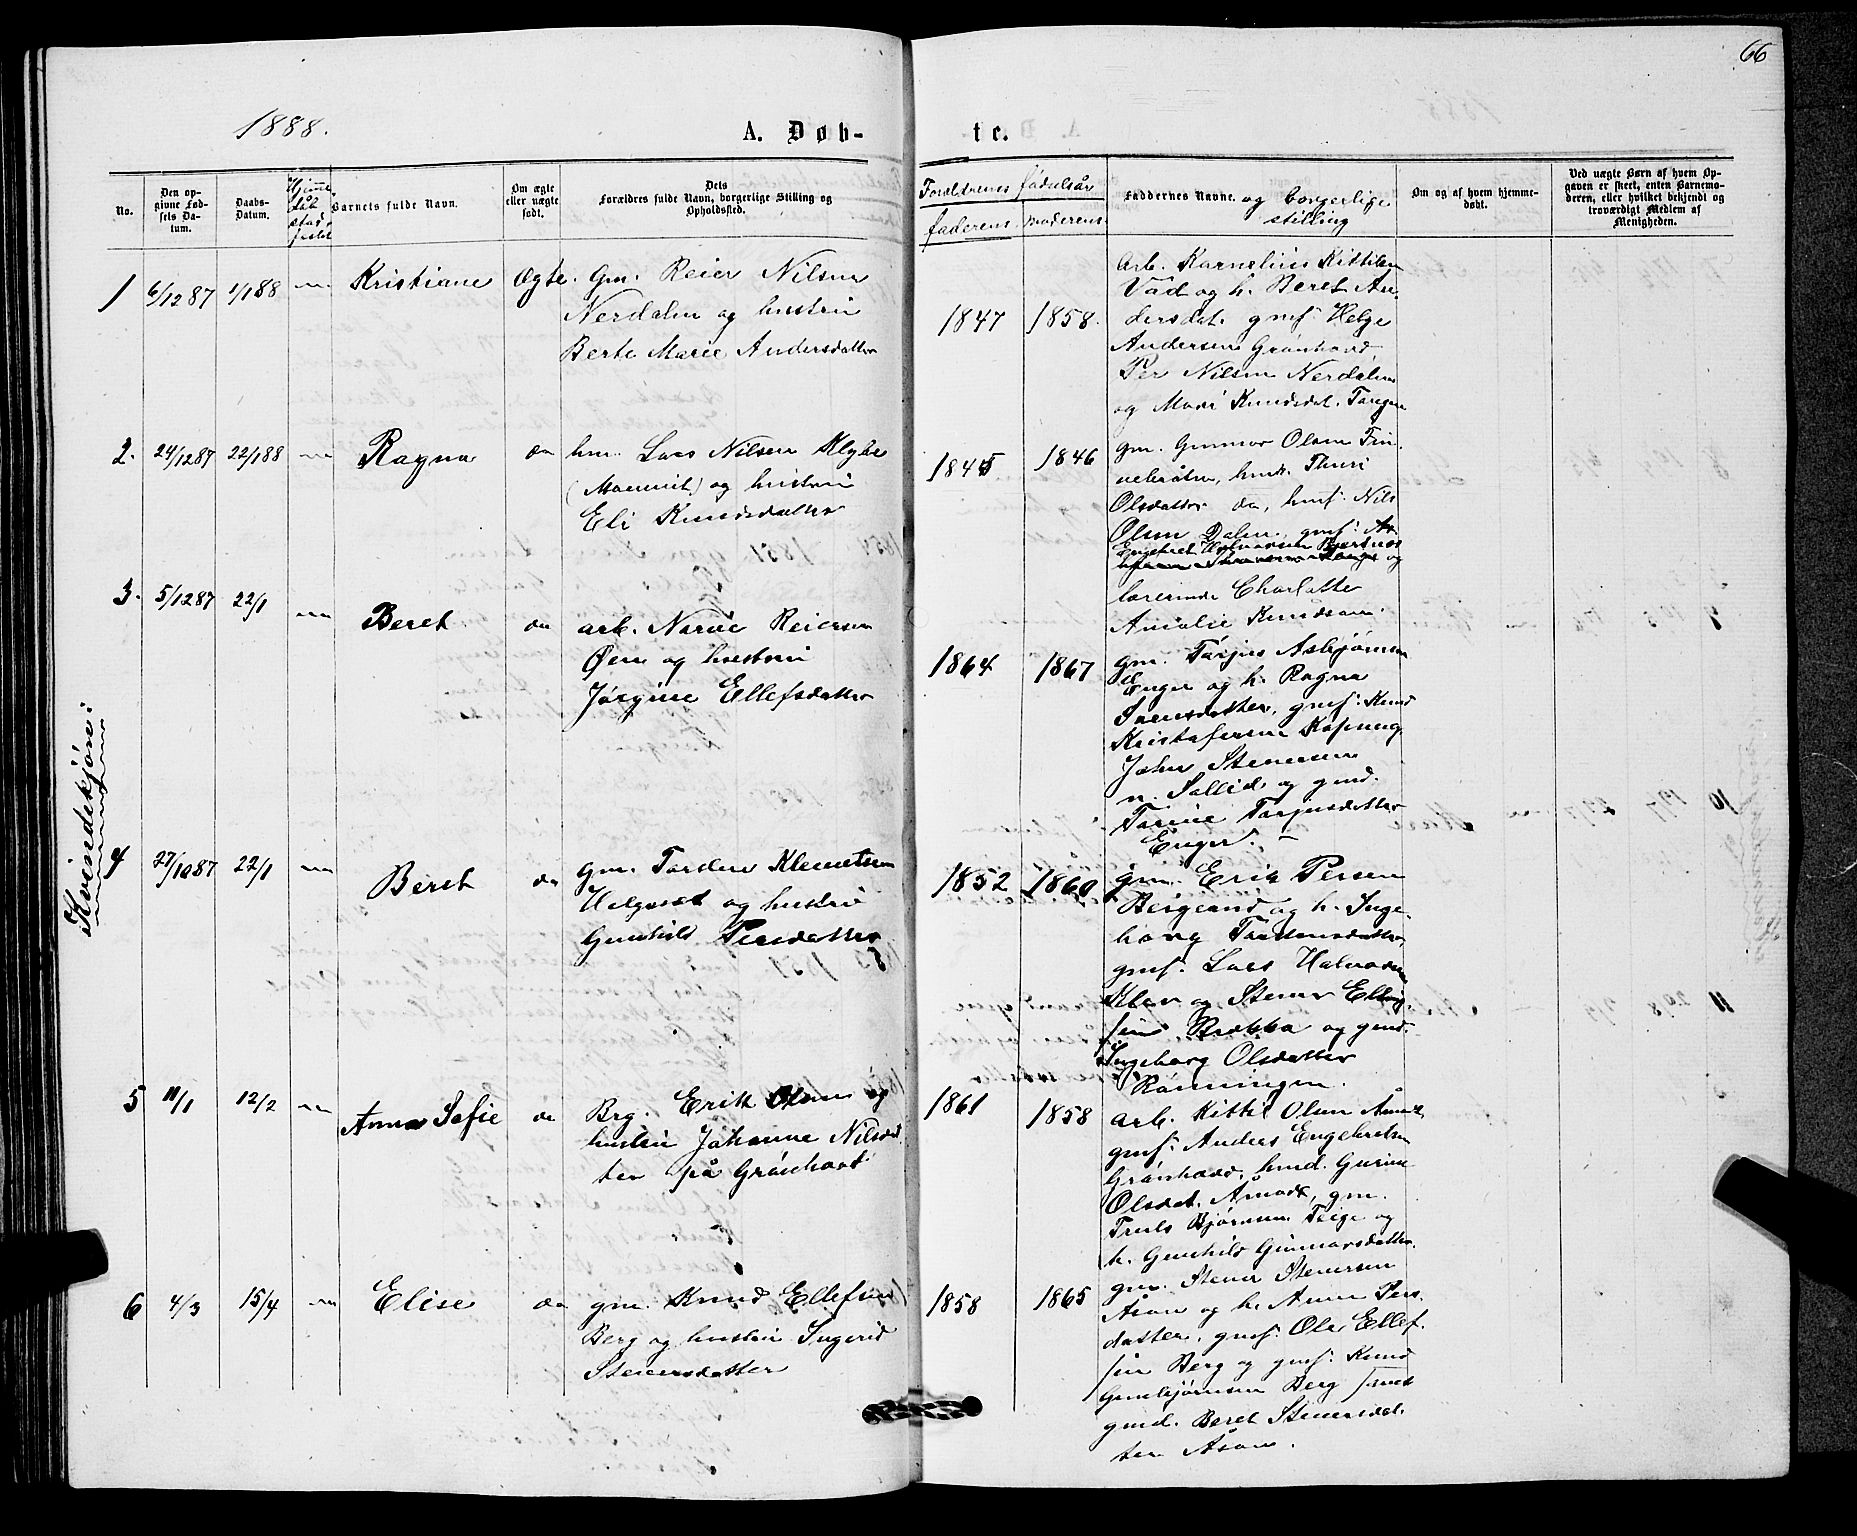 66
1888.
A. Døb-
te.
No.
Den op-
givne Fød-
sels Da-
tum.
Daabs-
Datum.
Hjemme-
dåb
stad
festet
Barnets fulde Navn.
Om ægte
eller uægte
født.
Dets
Forældres fulde Navn, borgerlige Stilling og
Opholdssted.
Forældrenes fødselsår
faderens
moderens
Faddernes Navne. og borgerlige
stilling
Om og af hvem hjemme-
døbt.
Ved uægte Børn af hvem Op-
gaven er skeet, enten Barnemo-
deren, eller hvilket bekjendt og
troværdigt Medlem af
Menigheden.
Kvindekjøn:
1 6/12 87 1/1 88 Kristiane Ægte. Gm. Reier Nilsen
Nerdalen og hustru
Berte Marie Andersdatter
1847 1858.
Arb. Karnelius Kittilsen
Vad og h. Beret An-
dersdat. gmf. Helge
Andersen Grønhovd,
Per Nilsen Nerdalen
og Mari Knudsdat.
2. 24/12 87 22/1 88 Ragna do hm. Lars Nilsen
og hustru
Eli Knudsdatter
1845 1846
gm. Gunnar Olsen
hmk. Thuri
Olsdatter do, hmf. Nils
Olsen Dalen, gmf.
Engebret Halvorsen
og
lærerinde Charlotte
Amalie Knudsen.
3. 5/12 87 22/1 Beret do arb. Narve Reiersen
Øen og hustru
Jørgine Ellefsdatter
1864 1867
gm. Tarjus Asbjørnsen
Enger og h. Ragna
Svensdatter, gmf. Knud
Kristofersen
John Stenersen
n. Sollid og gmd.
Torine Tarjusdatter
Enger.
4 27/10 87 22/1 Beret do gm. Torsten Klemetsen
Helgeset og hustru
Gunhild Persdatter
1852 1860
gm. Erik Persen
og h. Inge-
borg Torstensdatter,
gmf. Lars Halvorsen
og Stener Elling-
sen Brekka og gmd.
Ingeborg Olsdatter
Rønningen.
5 11/1 12/2 Anna Sofie do Brg. Erik Olsen og
hustru Johanne Nilsdat
ter på Grønhovd
1861 1858
arb. Kittil Olsen
gmf. Anders Engebretsen
Grønhovd, hmd. Gurine
Olsdat. Åmodt, gm.
Truls Bjørnsen Teige og
h. Gunhild Gunnarsdatter.
6 4/3 15/4 Elise do gm. Knud Ellefsen
Berg og hustru Ingerid
Stenersdatter
1858 1865
gm. Stener Stenersen
Åsen og h. Anne Pers-
datter, gmf. Ole Ellef-
sen Berg og gmf. Knud
Gunbjørnsen Berg samt
gmd. Beret Stenersdat-
ter Åsen.